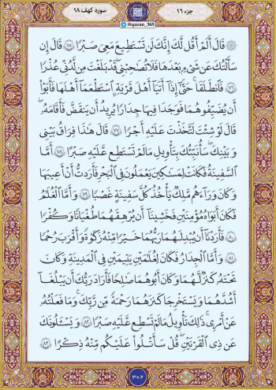 جزء ۱۶
@quran_365
سوره کهف ۱۸
قَالَ أَلَمْ أَقُل لَّكَ إِنَّكَ لَن تَسْتَطِيعَ مَعِيَ صَبْرًا ۝ قَالَ إِن
سَأَلْتُكَ عَن شَيْءٍ بَعْدَهَا فَلَا تُصَاحِبْنِي قَدْ بَلَغْتَ مِن لَّدُنِّي عُذْرًا
۝ فَانطَلَقَا حَتَّىٰ إِذَا أَتَيَا أَهْلَ قَرْيَةٍ اسْتَطْعَمَا أَهْلَهَا فَأَبَوْا
أَن يُضَيِّفُوهُمَا فَوَجَدَا فِيهَا جِدَارًا يُرِيدُ أَن يَنقَضَّ فَأَقَامَهُ
قَالَ لَوْ شِئْتَ لَتَّخَذْتَ عَلَيْهِ أَجْرًا ۝ قَالَ هَٰذَا فِرَاقُ بَيْنِي
وَبَيْنِكَ سَأُنَبِّئُكَ بِتَأْوِيلِ مَا لَمْ تَسْتَطِع عَّلَيْهِ صَبْرًا ۝ أَمَّا
السَّفِينَةُ فَكَانَتْ لِمَسَاكِينَ يَعْمَلُونَ فِي الْبَحْرِ فَأَرَدتُّ أَنْ أَعِيبَهَا
وَكَانَ وَرَاءَهُم مَّلِكٌ يَأْخُذُ كُلَّ سَفِينَةٍ غَصْبًا ۝ وَأَمَّا الْغُلَامُ
فَكَانَ أَبَوَاهُ مُؤْمِنَيْنِ فَخَشِينَا أَن يُرْهِقَهُمَا طُغْيَانًا وَكُفْرًا
۝ فَأَرَدْنَا أَن يُبْدِلَهُمَا رَبُّهُمَا خَيْرًا مِّنْهُ زَكَاةً وَأَقْرَبَ رُحْمًا
۝ وَأَمَّا الْجِدَارُ فَكَانَ لِغُلَامَيْنِ يَتِيمَيْنِ فِي الْمَدِينَةِ وَكَانَ
تَحْتَهُ كَنزٌ لَّهُمَا وَكَانَ أَبُوهُمَا صَالِحًا فَأَرَادَ رَبُّكَ أَن يَبْلُغَا
أَشُدَّهُمَا وَيَسْتَخْرِجَا كَنزَهُمَا رَحْمَةً مِّن رَّبِّكَ وَمَا فَعَلْتُهُ
عَنْ أَمْرِي ذَٰلِكَ تَأْوِيلُ مَا لَمْ تَسْطِع عَّلَيْهِ صَبْرًا ۝ وَيَسْأَلُونَكَ
عَن ذِي الْقَرْنَيْنِ قُلْ سَأَتْلُو عَلَيْكُم مِّنْهُ ذِكْرًا ۝
۳۰۲